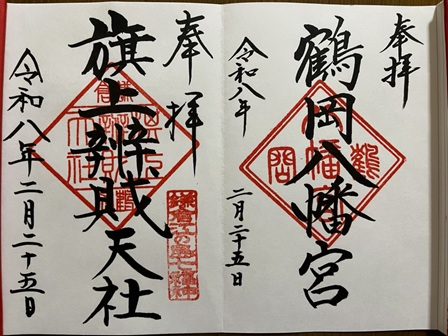 奉拝
鶴岡八幡宮
令和八年
二月二十五日
奉拝
旗上辨財天社
鎌倉江の島七福神
令和八年二月二十五日